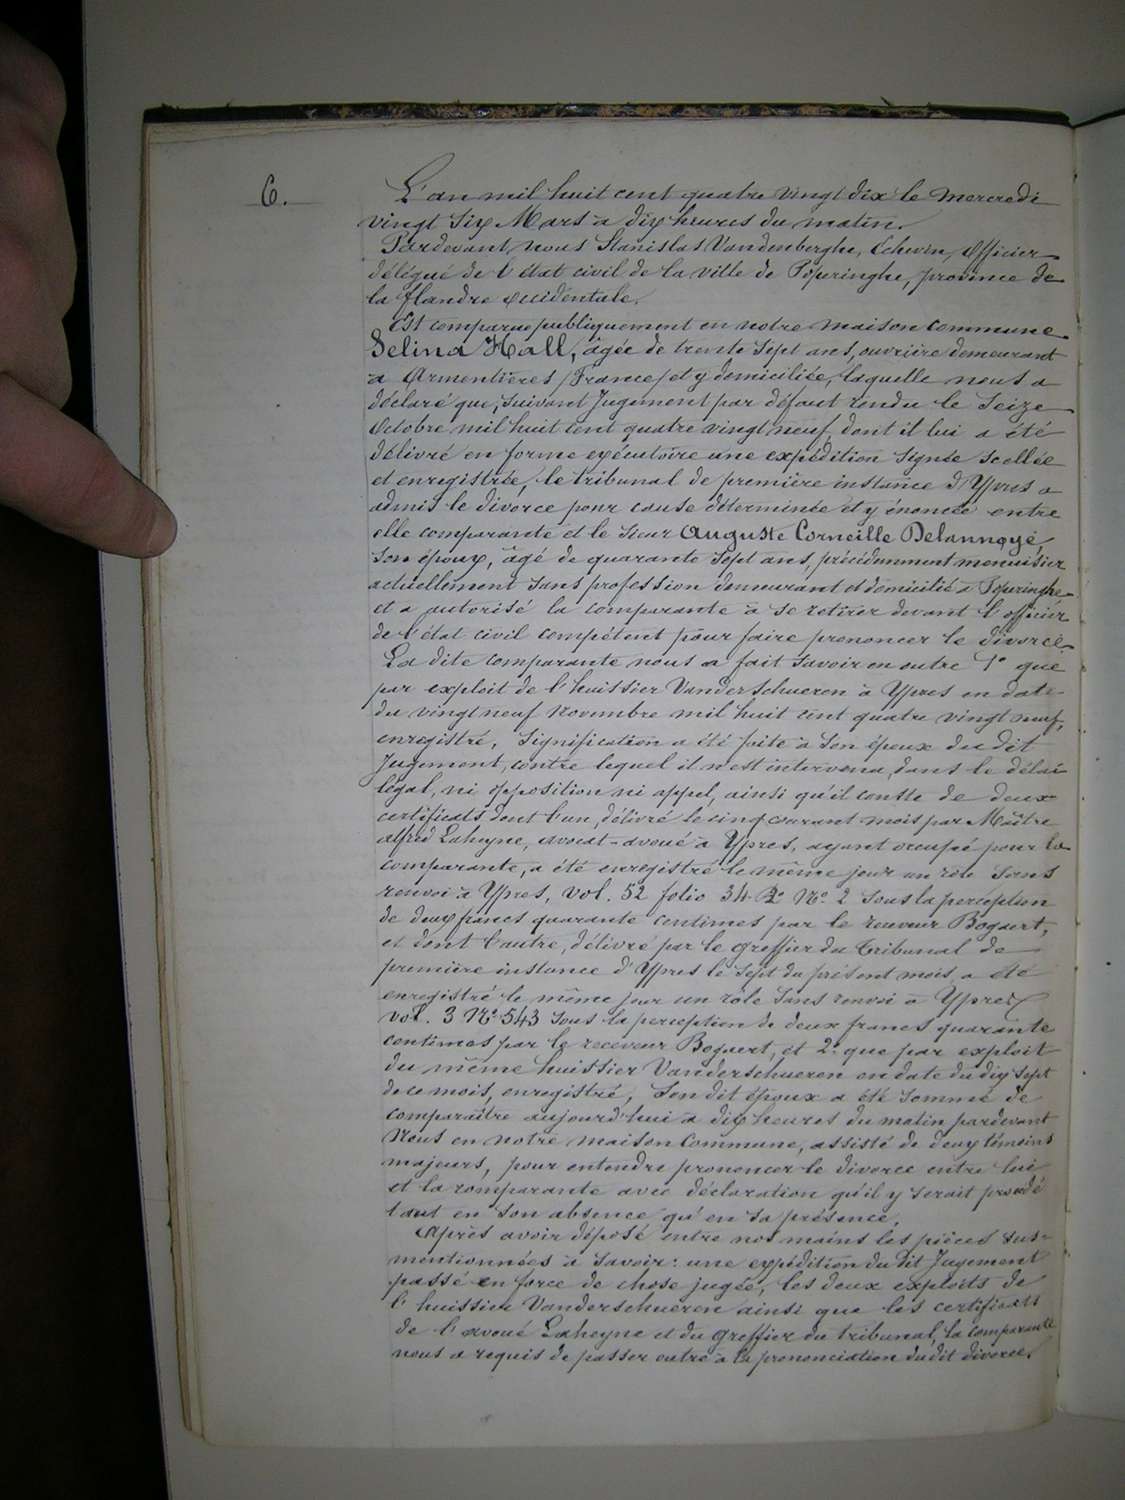 6.
L'an mil huit cent quatre vingt dix le Mercredi
vingt six Mars à dix heures du matin.
Pardevant nous Stanislas Vandenberghe, Echevin, Officier
délégué de l'état civil de la ville de Poperinghe, province de
la flandre occidentale.
Est comparue publiquement en notre maison commune
Selina Hall, âgée de trente sept ans, ouvrière demeurant
à Armentières (France) et y domiciliée, laquelle nous a
déclaré que, suivant Jugement par défaut rendu le Seize
Octobre mil huit cent quatre vingt neuf, dont il lui a été
délivré en forme exécutoire une expédition signée scellée
et enregistrée, le tribunal de première instance d'Ypres a
admis le divorce pour cause déterminée et y énoncée entre
elle comparante et le Sieur Auguste Corneille Delannoye,
son époux, âgé de quarante sept ans, précédemment menuisier
actuellement sans profession demeurant et domicilié à Poperinghe
et a autorisé la comparante à se retirer devant l'officier
de l'état civil compétent pour faire prononcer le divorce.
La dite comparante nous a fait savoir en outre 1° que
par exploit de l'huissier Vanderschueren à Ypres en date
du vingt neuf Novembre mil huit cent quatre vingt neuf,
enregistré, signification a été faite à son époux du dit
Jugement, contre lequel il n'est intervenu, dans le délai
légal, ni opposition ni appel, ainsi qu'il conste de deux
certificats dont l'un, délivré le cinq courant mois par Maître
Alfred Laheyne, avocat-avoué à Ypres, ayant occupé pour la
comparante, a été enregistré le même jour un rôle sans
renvoi à Ypres, vol. 52 folio 34 R° N° 2 sous la perception
de deux francs quarante centimes par le receveur Bogaert,
et dont l'autre, délivré par le greffier du tribunal de
première instance d'Ypres le sept du présent mois, a été
enregistré le même jour un rôle sans renvoi à Ypres
vol. 3 N° 543 sous la perception de deux francs quarante
centimes par le receveur Bogaert, et 2° que par exploit
du même huissier Vanderschueren en date du dix sept
de ce mois, enregistré, son dit époux a été sommé de
comparaître aujourd'hui à dix heures du matin pardevant
Nous en notre maison Commune, assisté de deux témoins
majeurs, pour entendre prononcer le divorce entre lui
et la comparante avec déclaration qu'il y serait procédé
tant en son absence qu'en sa présence.
Après avoir déposé entre nos mains les pièces sus-
mentionnées à savoir: une expédition du dit Jugement
passé en force de chose jugée, les deux exploits de
l'huissier Vanderschueren ainsi que les certificats
de l'avoué Laheyne et du greffier du tribunal, la comparante
nous a requis de passer outre à la prononciation du dit divorce.